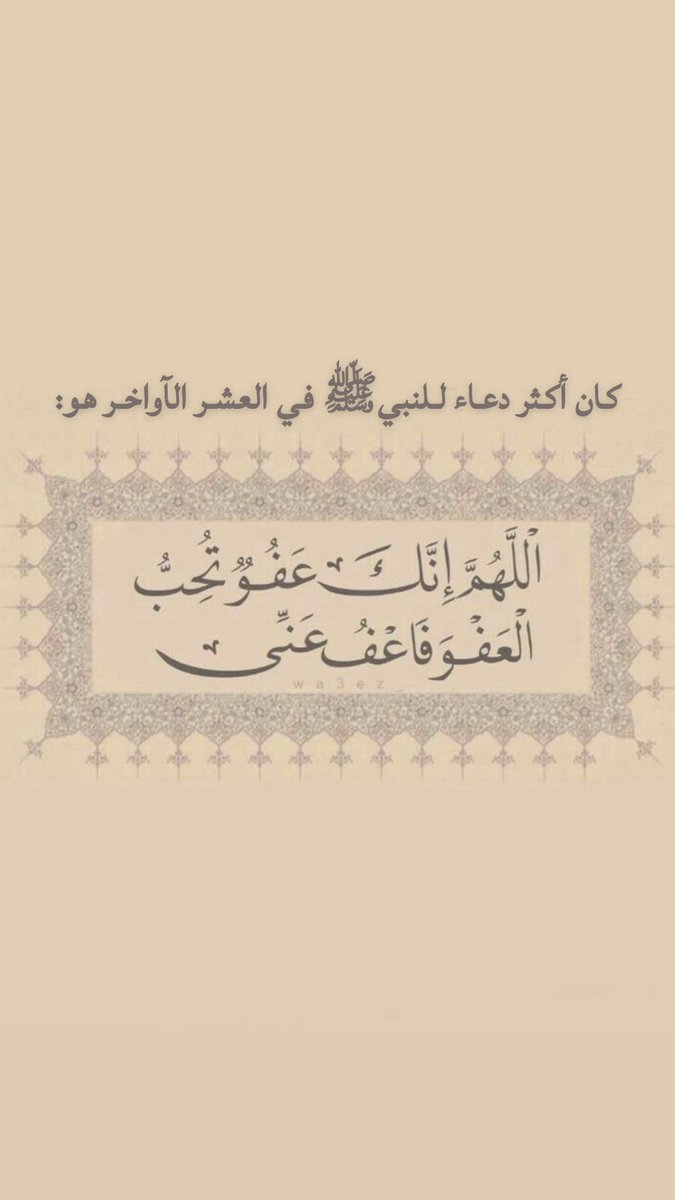 كان أكثر دعاء للنبي ﷺ في العشر الآواخر هو:
اللَّهُمَّ إِنَّكَ عَفُوٌّ تُحِبُّ
الْعَفْوَ فَاعْفُ عَنِّي
wa3ez_